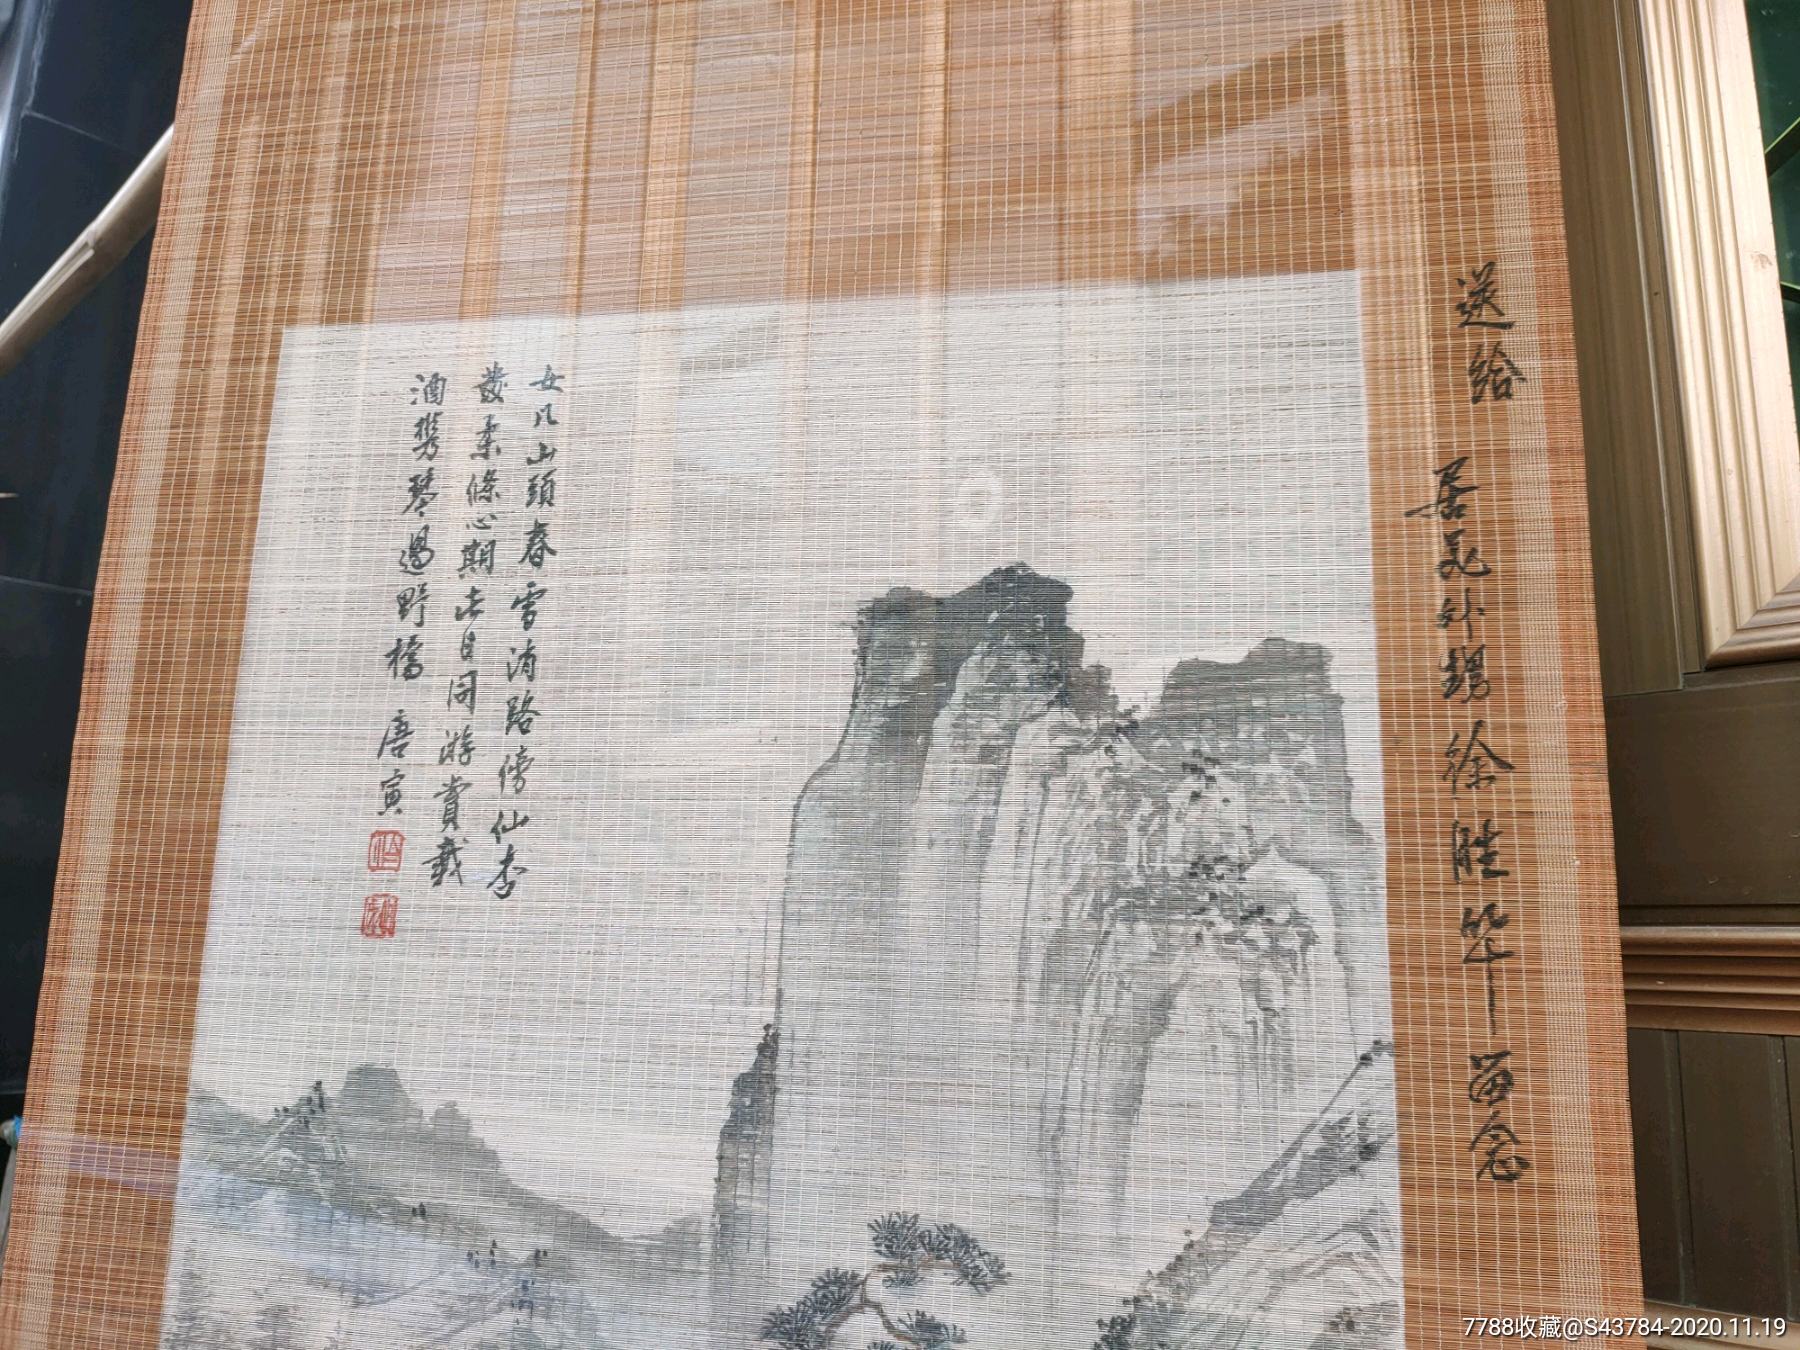 送給 外甥徐胜华 留念
女几山頭春雪消路傍仙杏
發柔條心期此日同游賞載
酒攜琴過野橋 唐寅
7788收藏@S43784-2020.11.19